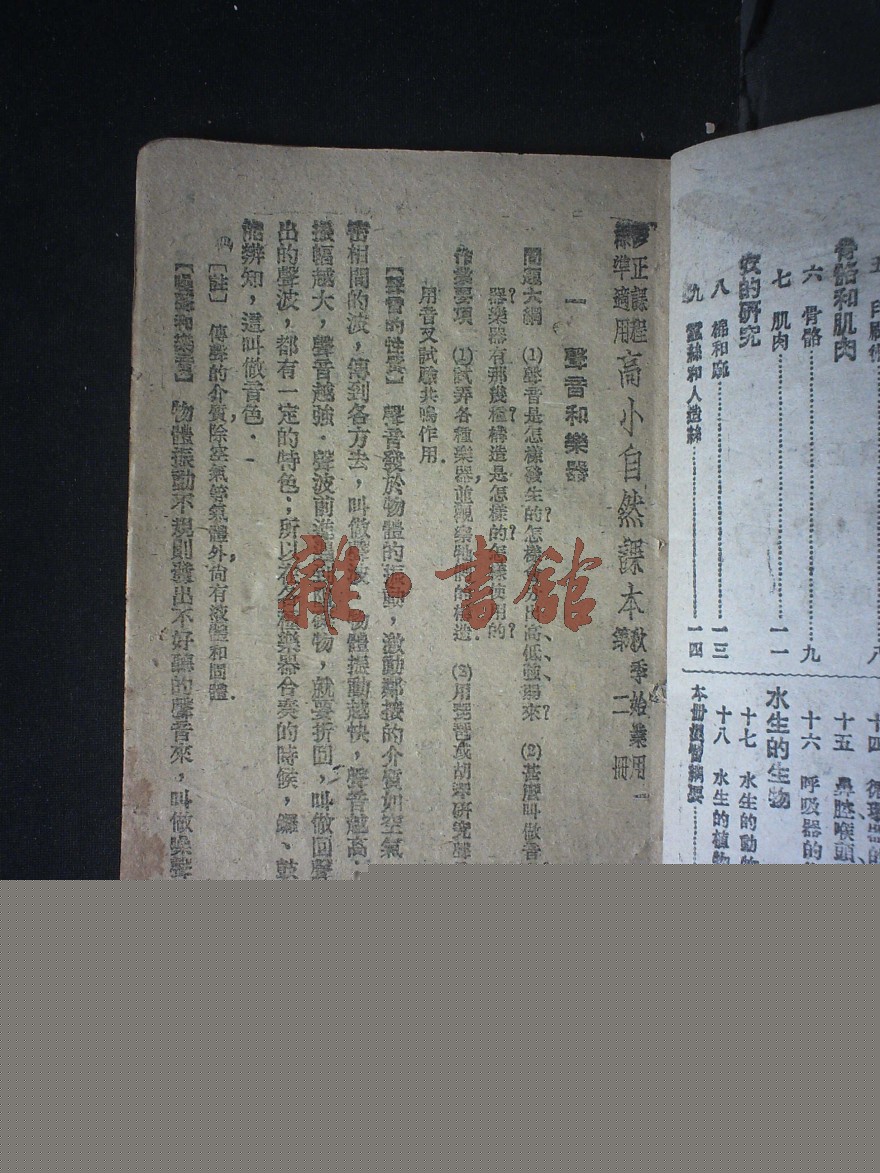 五
骨骼和肌肉
六 骨骼……九
七 肌肉……一一
衣的研究
八 棉和麻……一三
九 蠶絲和人造絲……一四
十四 循環器的
十五 鼻腔喉頭
十六 呼吸器的
水生的生物
十七 水生的動物
十八 水生的植物
本冊
修正課程
標準適用
高小自然課本
秋季始業用
第二冊
一
一 聲音和樂器
問題大綱 (1)聲音是怎樣發生的?怎樣 出高低、強弱來? (2)甚麼叫做音
器?樂器有那幾種?構造是怎樣的?怎樣使用的?
作業要項 (1)試弄各種樂器,並觀察牠們的構造. (2)用琵琶或胡琴研究聲
用音叉試驗共鳴作用.
【聲音的性質】 聲音發於物體的振動,激動鄰接的介質如空氣
密相間的波,傳到各方去,叫做聲波.物體振動越快,聲音越高;
振幅越大,聲音越強.聲波前進, 物,就要折回,叫做回聲
出的聲波,都有一定的特色;所以 各種樂器合奏的時候,鑼、鼓
能辨知,這叫做音色.
【註】 傳聲的介質,除空氣等氣體外,尙有液體和固體.
【噪聲和樂音】 物體振動不規則,發出不好聽的聲音來,叫做噪聲
雜·書館